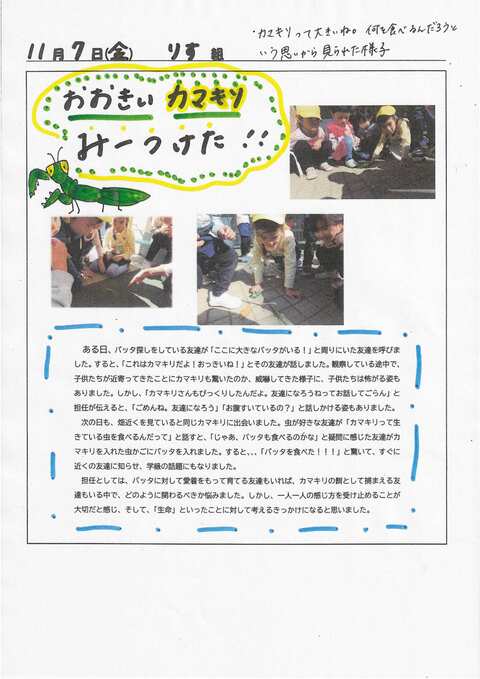 ・カマキリって大きいね。何を食べるんだろうと
いう思いから見られた様子
11月7日(金) りす 組
おおきい カマキリ
みーつけた!!
ある日、バッタ探しをしている友達が「ここに大きなバッタがいる！」と周りにいた友達を呼びま
した。すると、「これはカマキリだよ！おっきいね！」とその友達が話しました。観察している途中で、
子供たちが近寄ってきたことにカマキリも驚いたのか、威嚇してきた様子に、子供たちは怖がる姿も
ありました。しかし、「カマキリさんもびっくりしたんだよ。友達になろうねってお話してごらん」と
担任が伝えると、「ごめんね。友達になろう」「お腹すいているの？」と話しかける姿もありました。
次の日も、畑近くを見ていると同じカマキリに出会いました。虫が好きな友達が「カマキリって生
きている虫を食べるんだって」と話すと、「じゃあ、バッタも食べるのかな」と疑問に感じた友達がカ
マキリを入れた虫かごにバッタを入れました。すると、、、「バッタを食べた！！！」と驚いて、すぐに
近くの友達に知らせ、学級の話題にもなりました。
担任としては、バッタに対して愛着をもって育てる友達もいれば、カマキリの餌として捕まえる友
達もいる中で、どのように関わるべきか悩みました。しかし、一人一人の感じ方を受け止めることが
大切だと感じ、そして、「生命」といったことに対して考えるきっかけになると思いました。